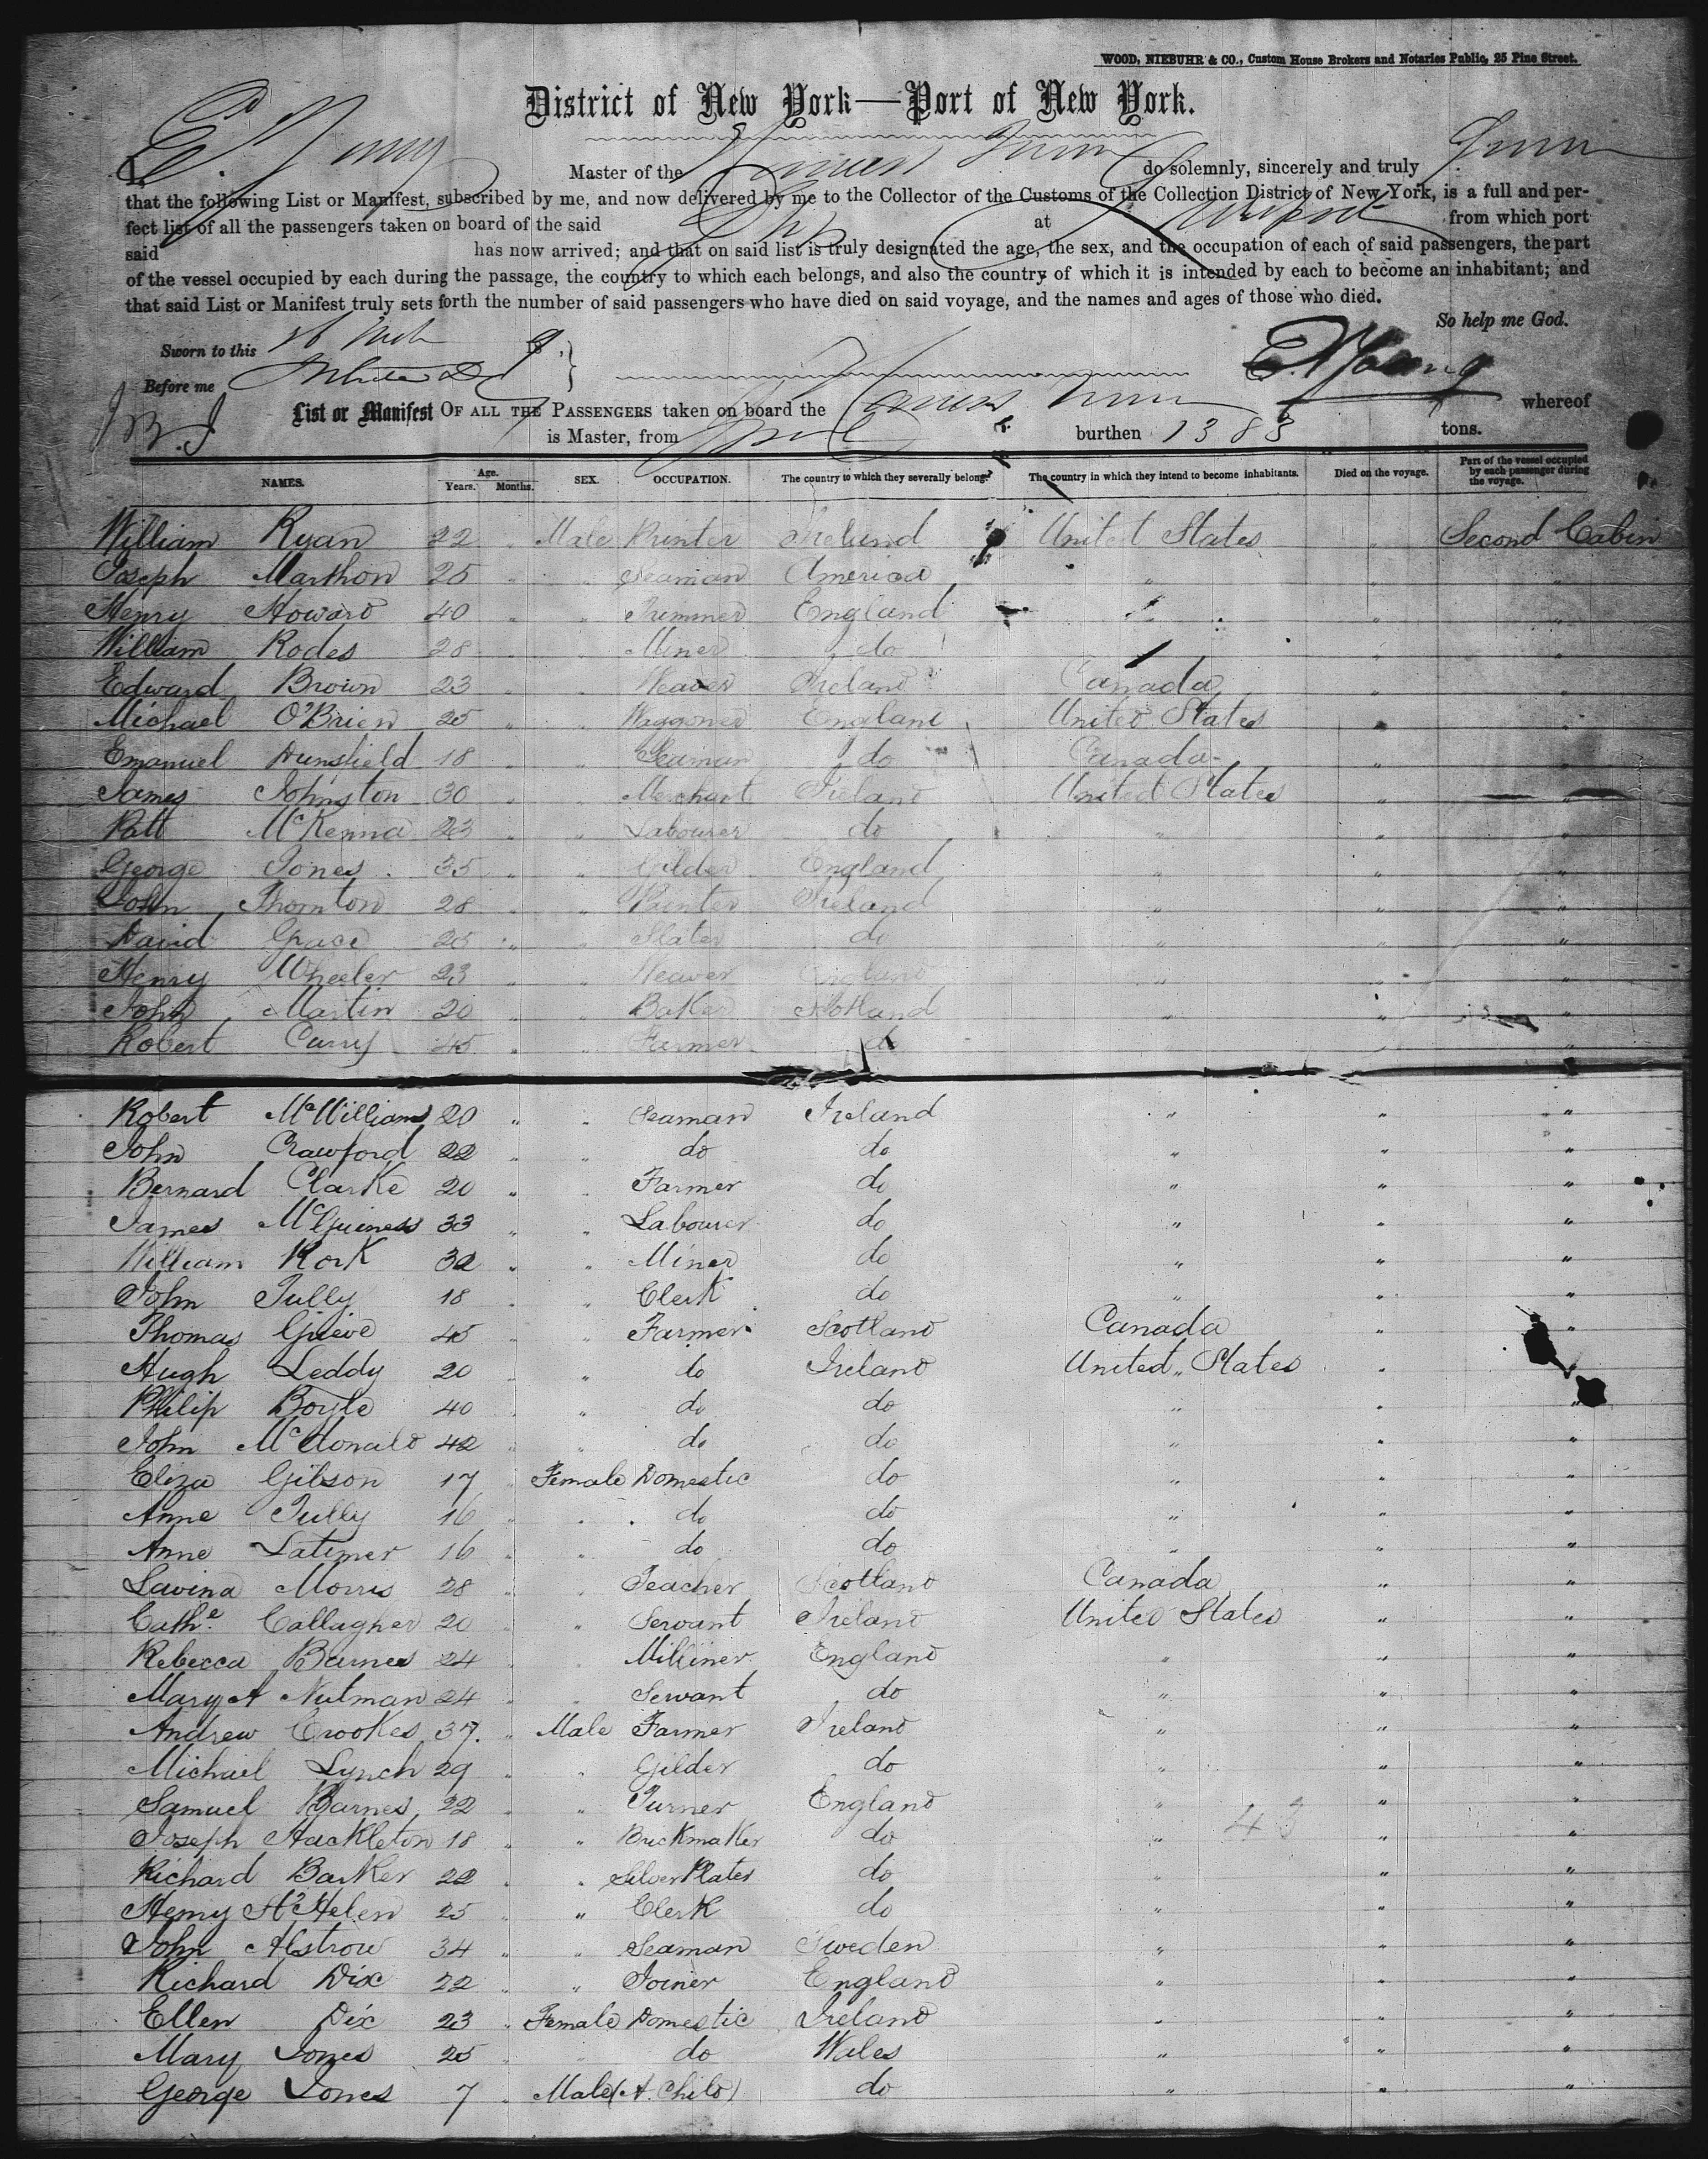 WOOD, NIEBUHR & CO., Custom House Brokers and Notaries Public, 25 Pine Street.
District of New York—Port of New York.
I, E. Young Master of the do solemnly, sincerely and truly
that the following List or Manifest, subscribed by me, and now delivered by me to the Collector of the Customs of the Collection District of New York, is a full and per-
fect list of all the passengers taken on board of the said Ship at Liverpool from which port
said has now arrived; and that on said list is truly designated the age, the sex, and the occupation of each of said passengers, the part
of the vessel occupied by each during the passage, the country to which each belongs, and also the country of which it is intended by each to become an inhabitant; and
that said List or Manifest truly sets forth the number of said passengers who have died on said voyage, and the names and ages of those who died.
So help me God.
Sworn to this 18
Before me E. Young
List or Manifest OF ALL THE PASSENGERS taken on board the whereof
is Master, from burthen 1383 tons.
NAMES. Age. Years. Months. SEX. OCCUPATION. The country to which they severally belong. The country in which they intend to become inhabitants. Died on the voyage. Part of the vessel occupied by each passenger during the voyage.
William Ryan 22 " Male Printer Ireland United States " Second Cabin
Joseph Marthon 25 " " Seaman America " " "
Henry Howard 40 " " England " " "
William Rodes 28 " " Miner do " "
Edward Brown 23 " " Weaver Ireland Canada " "
Michael O'Brien 25 " " Waggoner England United States " "
Emanuel Dunsfield 18 " " Seaman do Canada " "
James Johnston 30 " " Merchant Ireland United States " "
Patt McKenna 23 " " Labourer do " " "
George Jones 35 " " Gilder England " " "
John Thornton 28 " " Ireland " " "
David Grace 25 " " Slater do " " "
Henry Wheeler 23 " " Weaver England " " "
John Martin 20 " " Baker Scotland " " "
Robert Curry 45 " " Farmer do " "
Robert McWilliams 20 " " Seaman Ireland " " "
John Crawford 22 " " do do " " "
Bernard Clarke 20 " " Farmer do " " "
James McGuiness 33 " " Labourer do " " "
William Rork 32 " " Miner do " " "
John Tully 18 " " Clerk do " " "
Thomas Grieve 45 " " Farmer Scotland Canada " "
Hugh Leddy 20 " " do Ireland United States " "
Philip Boyle 40 " " do do " " "
John McDonald 42 " " do do " " "
Eliza Gibson 17 " Female Domestic do " " "
Anne Tully 16 " " do do " " "
Anne Latimer 16 " " do do " " "
Lavina Morris 28 " " Teacher Scotland Canada " "
Cathe. Callagher 20 " " Servant Ireland United States " "
Rebecca Barnes 24 " " Milliner England " " "
Mary A Nutman 24 " " Servant do " " "
Andrew Crookes 37. " Male Farmer Ireland " " "
Michael Lynch 29 " " Gilder do " " "
Samuel Barnes 22 " " Turner England " " "
Joseph Hackleton 18 " " Brickmaker do " " "
Richard Barker 22 " " Silver Plater do " " "
Henry 25 " " Clerk do " " "
John Alstrow 34 " " Seaman Sweden " " "
Richard Dix 22 " " Joiner England " " "
Ellen Dix 23 " Female Domestic Ireland " " "
Mary Jones 25 " " do Wales " " "
George Jones 7 " Male (A. Child) do " " "
43